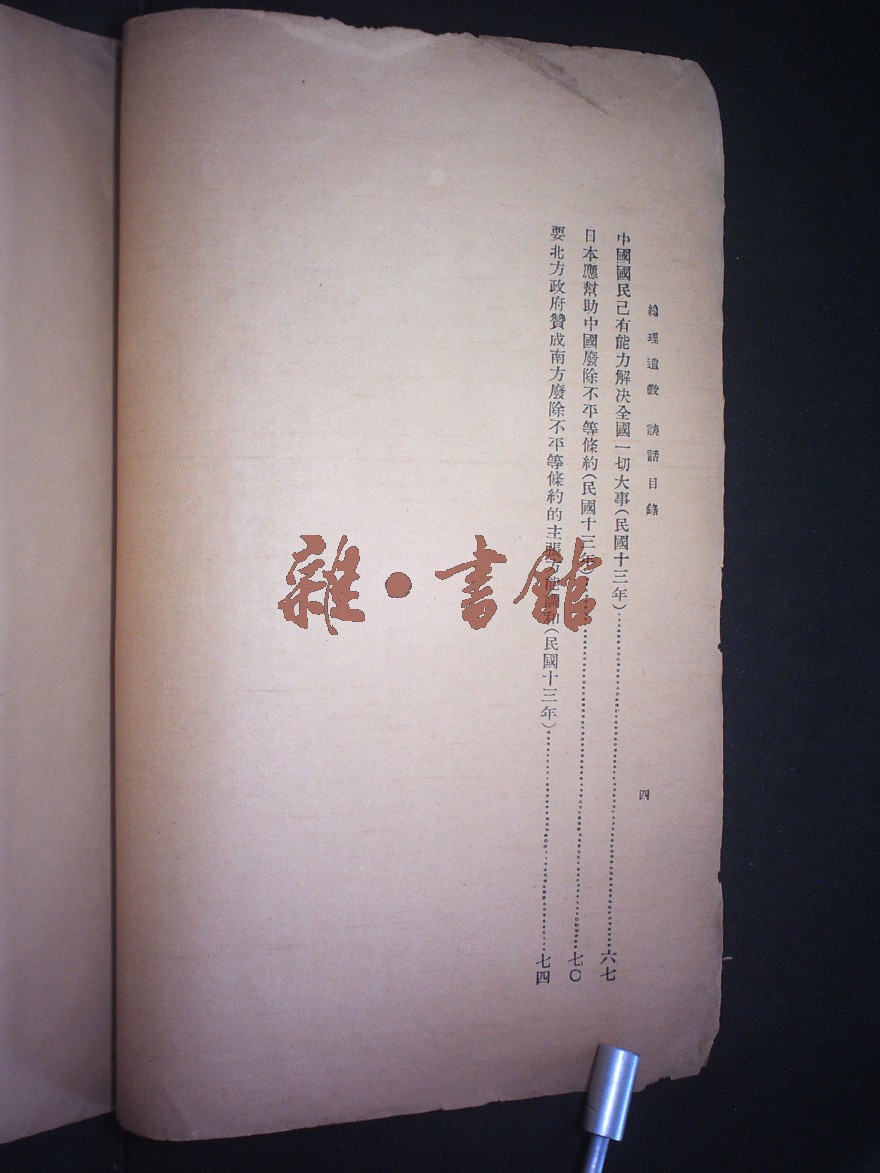 總理遺教 談話目錄
四
中國國民已有能力解決全國一切大事(民國十三年)…………六七
日本應幫助中國廢除不平等條約(民國十三年)…………七〇
要北方政府贊成南方廢除不平等條約的主張 能調和(民國十三年)…………七四
雜·書館